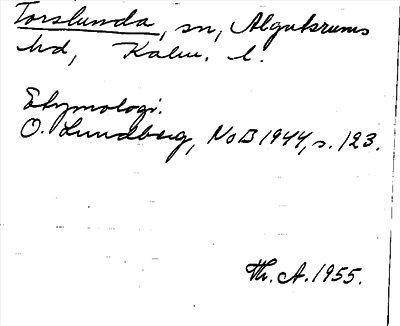 Torslunda, sn, Algutsrums
hd, Kalm. l.
Etymologi.
O. Lundberg, NoB 1944, s. 123.
Th. A. 1955.